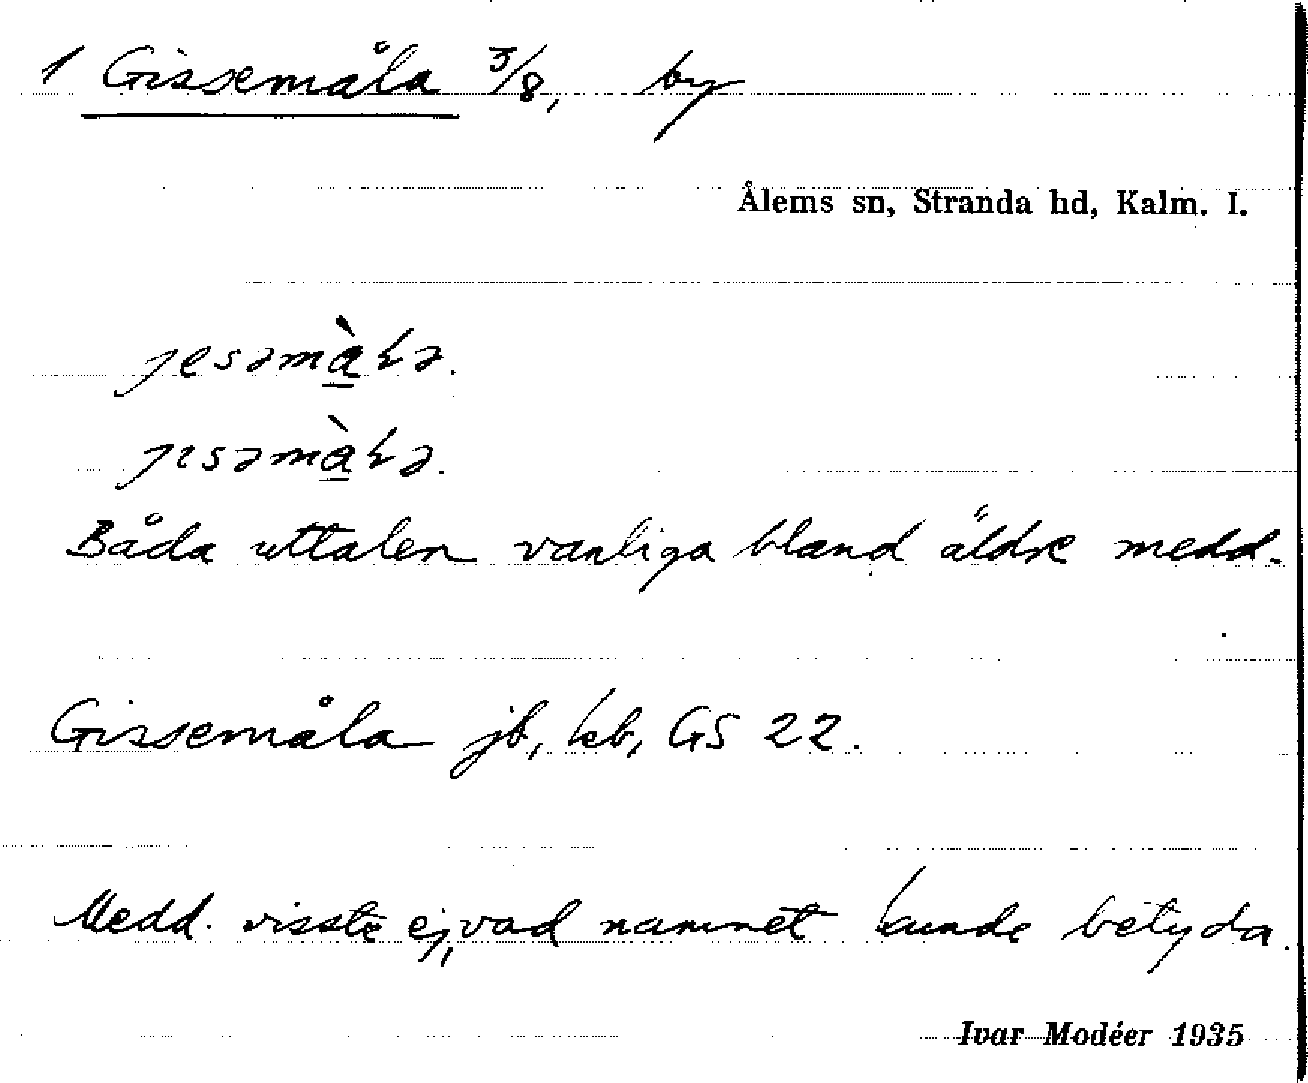 1 Gissemåla 3/8, by
Ålems sn, Stranda hd, Kalm. l.
jesəmàƚə.
jɩsəmàƚə.
Båda uttalen vanliga bland äldre medd.
Gissemåla jb, kb, GS 22.
Medd. visste ej, vad namnet kunde betyda.
Ivar Modéer 1935